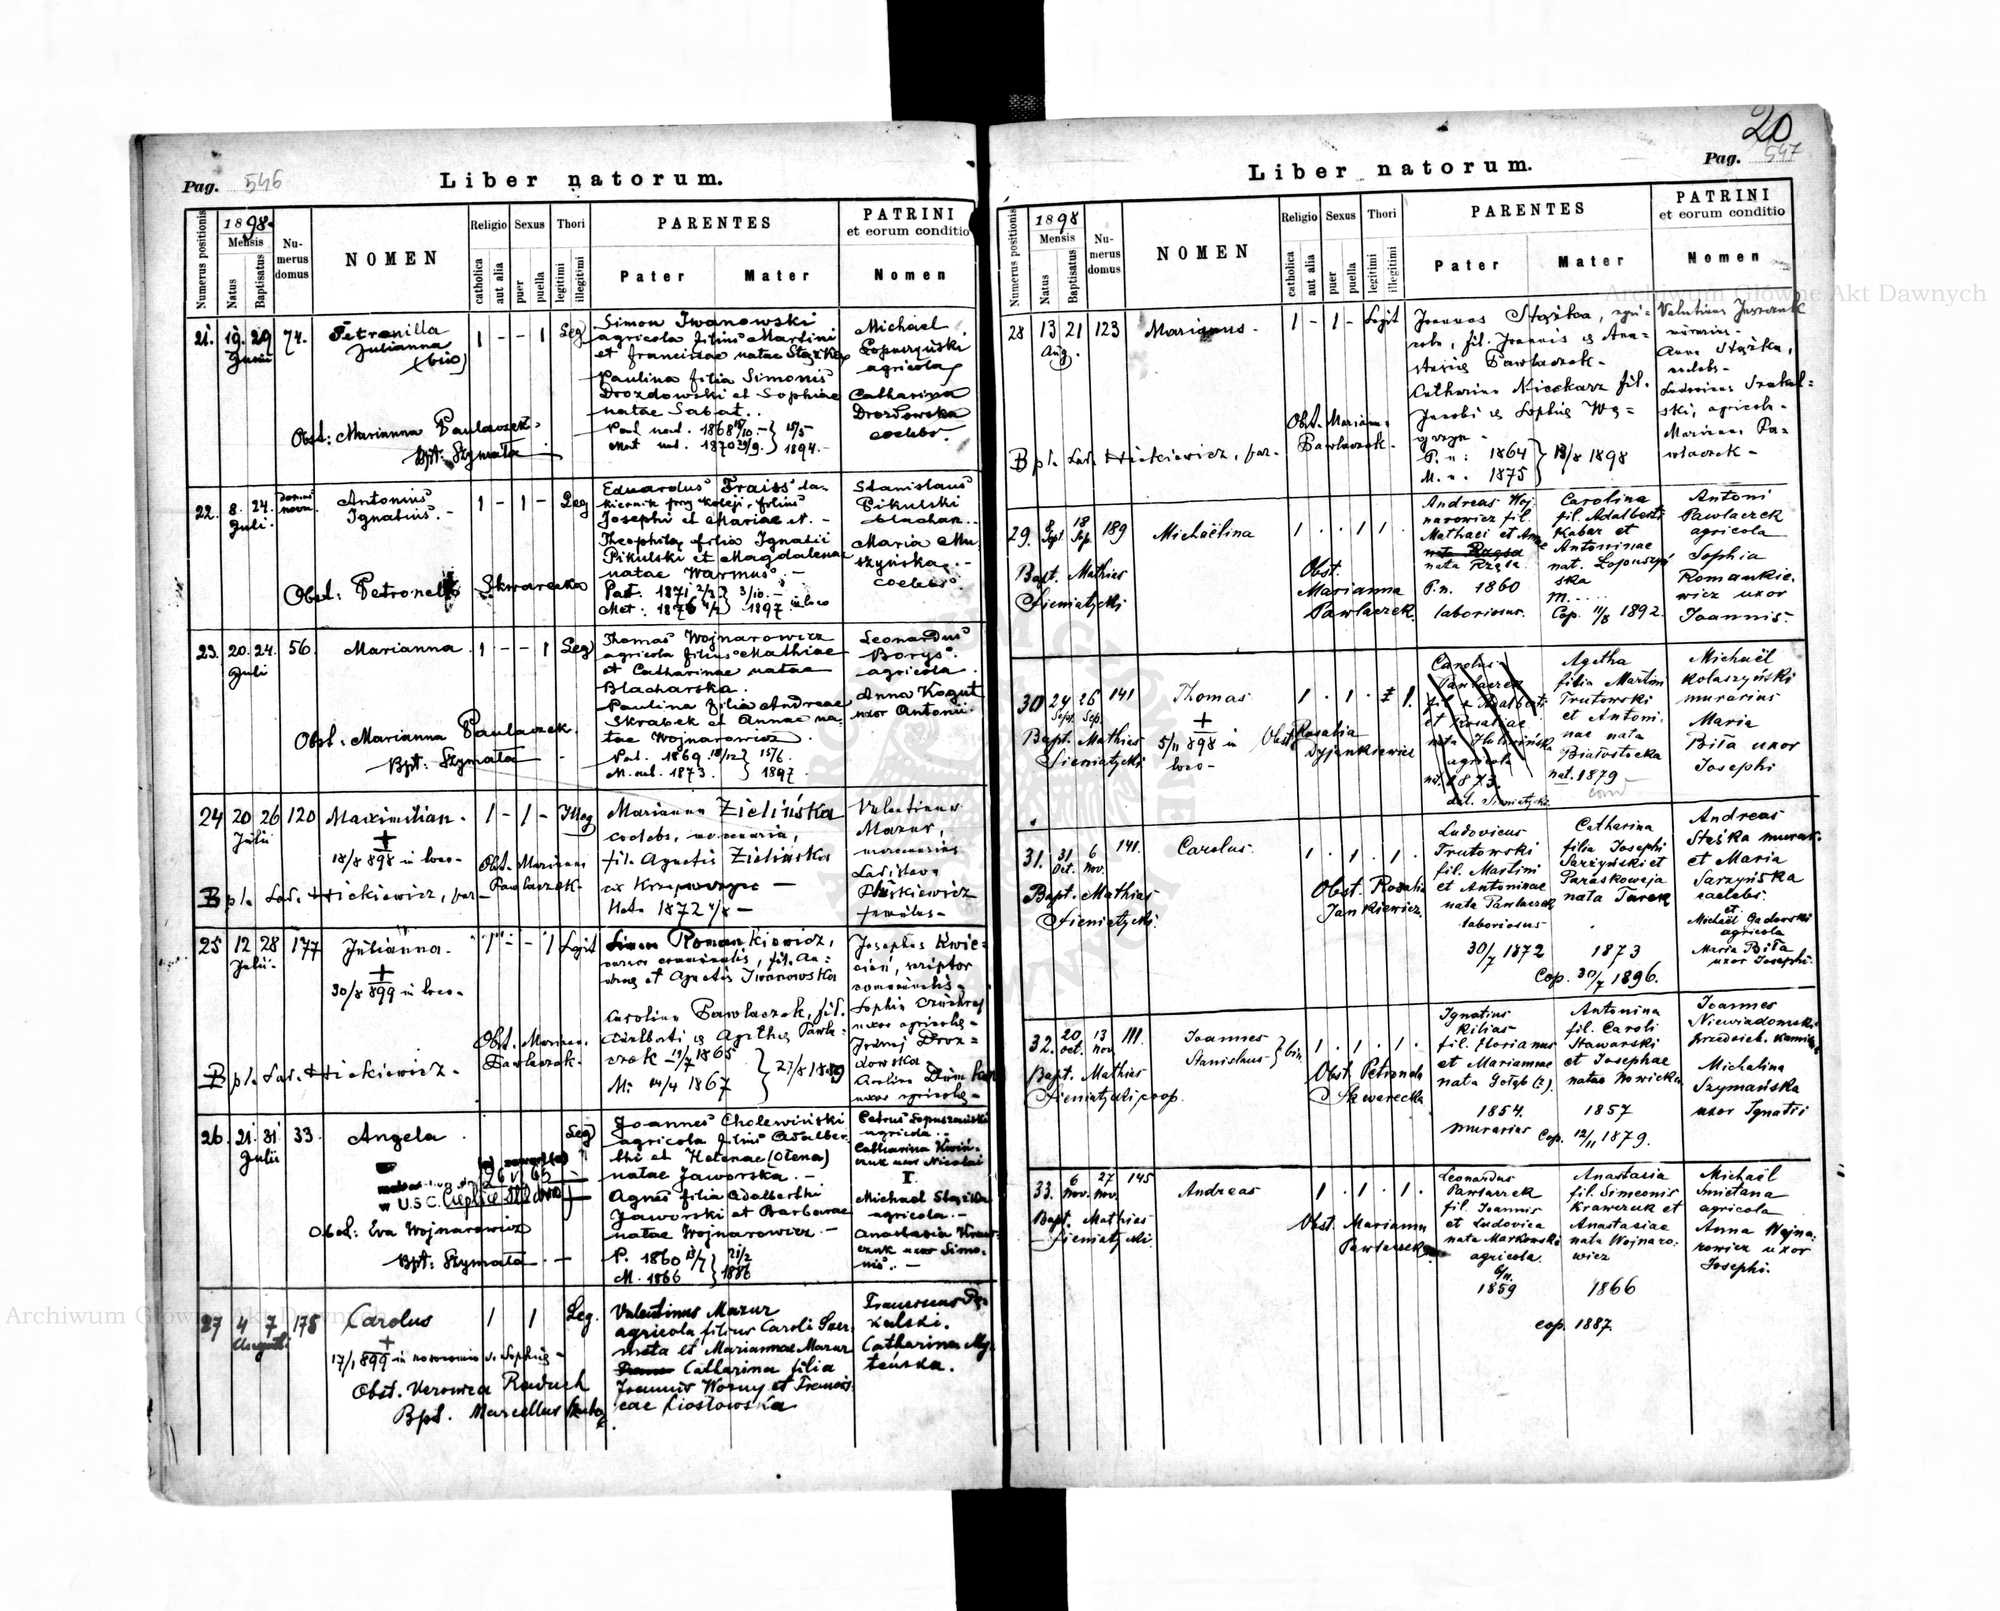 20
Pag. 546
Liber natorum.
Numerus positionis
1898.
Mensis
Natus
Baptisatus
Nu-
merus
domus
NOMEN
Religio
catholica
aut alia
Sexus
puer
puella
Thori
legitimi
illegitimi
PARENTES
Pater
Mater
PATRINI
et eorum conditio
Nomen
21. 19. 29 74. Petronilla 1 - - 1 Leg
Junii
Julianna
(bin)
Simon Iwanowski
agricola filius Martini
et Franciscae natae Stążka
Paulina filia Simonis
Drozdowski et Sophiae
natae Sabat.
1894.
Michael
agricola
Catharina
Drozdowska
coelebs.
Obst: Marianna Pawlaczek.
Bpt: Szymała
22. 8. 24. domus nova. Antonius 1 - 1 - Leg
Juli.
Ignatius. -
Eduardus Fraiss la-
kiernik przy koleji, filius
Josephi et Mariae N. -
Theophila filia Ignatii
Pikulski et Magdalenae
natae Warmus. -
Pat. 1871 2/3 } 3/10. -
Mat. 1876 } 1897 in loco
Stanislaus
Pikulski
blachar..
Maria Mu-
szyńska. -
coelebs.
Obst: Petronella Skwarecka
23. 20. 24. 56. Marianna 1 - - 1 Leg
Juli
Thomas Wojnarowicz
agricola filius Mathiae
et Catharinae natae
Blacharska.
Paulina filia Andreae
Skrabek et Annae na-
tae Wojnarowicz.
Pat. 1869 18/12 } 15/6.
M. nat. 1873. } 1897.
Leonardus
Borys.
agricola.
Anna Kogut
uxor Antonii.
Obst: Marianna Pawlaczek.
Bpt: Szymała -
24 20 26 120 Maximilian. 1 - 1 - Illeg
Julii
+
18/8 898 in loco-
Marianna Zielińska
coelebs,
fil. Agnetis Zielińska
ex
1872
Valentinus
Mazur,
Ladislava
famula-
Obst. Marianna
Pawlaczek.
Bpt. Lad. Hickiewicz, par-
25 12 28 177 Julianna. 1 - - 1 Legit
Julii.
+
30/8 899 in loco-
Simon Romankiewicz,
communalis, fil. An-
dreae et Agnetis Iwanowska
Carolina Pawlaczek, fil.
Adalberti et Agathae Pawla-
czek 1865
M: 14/4 1867
27/8 1889
Josephus Kwie-
cień, scriptor
communalis-
Sophia
uxor agricolae-
Jędrzej Droz-
dowska
uxor agricolae-
Obst. Marianna
Pawlaczek.
Bpt. Lad. Hickiewicz.
26. 21. 31. 33. Angela Leg
Julii
26 VI 65
w U.S.C. Cieplice
Joannes Cholewiński
agricola filius Adalber-
thi et Helenae (Olena)
natae Jaworska. -
Agnes filia Adalberthi
Jaworski et Barbarae
natae Wojnarowicz. -
P. 1860 } 21/2
M. 1866 } 1886
Petrus Łopuszański
agricola..
Catharina
uxor Nicolai
Michael Stążka
agricola. -
Anastasia
uxor Simo-
nis. -
Obst: Eva Wojnarowicz
Bpt: Szymała. -
27 4 7 178 Carolus 1 1 Leg.
Augusti
+
17/1 899 in nosocomio s. Sophiae-
Valentinus Mazur
agricola filius Caroli
et Mariannae Mazur
Catharina filia
Joannis Worny et Francis-
cae
Franciscus
Catharina My-
Obst. Veronica Raduch
Bpt. Marcellus
Pag. 547
Liber natorum.
Numerus positionis
1898
Mensis
Natus
Baptisatus
Nu-
merus
domus
NOMEN
Religio
catholica
aut alia
Sexus
puer
puella
Thori
legitimi
illegitimi
PARENTES
Pater
Mater
PATRINI
et eorum conditio
Nomen
28 13 21 123 Marianus. 1 - 1 - Legit
Aug.
Joannes Stążka, agri-
cola, fil. Joannis et Ana-
stasiae Pawlaczek-
Catharina Nieckarz fil.
Jacobi et Sophiae Wę-
grzyn -
P. n: 1864 } 13/8 1898
M. n. 1875
Valentinus Juszczak
murarius-
Anna Stążka,
coelebs-
Ludovicus Szakal-
ski, agricola-
Marianna Pa-
wlaczek -
Obst. Marianna
Pawlaczek-
Bpt. Lad. Hickiewicz, par.
29. 18 189 Michaëlina 1 . . 1 1 .
Sept Sep.
Andreas Woj-
narowicz fil.
Mathaei et Annae
nata Rząsa.
P.n. 1860
laboriosus.
Carolina
fil. Adalberti
Kabar et
Antoninae
nat. Łopuszyń
ska
M. ....
Cop. 11/8 1892.
Antoni
Pawlaczek
agricola
Sophia
Romankie-
wicz uxor
Joannis.
Bapt. Mathias
Sieniatycki
Obst.
Marianna
Pawlaczek.
30 24 26 141 Thomas 1 . 1 . 1.
Sept. Sep.
+
5/11 898 in
loco-
Carolus
Pawlaczek
fil. Adalberti
et Rosaliae
nata
agricola
nat. 1873.
Agatha
filia Martini
Trutowski
et Antoni-
nae nata
Białostocka
nat. 1879
Michaël
Kolaszyński
murarius
Maria
Biła uxor
Josephi
Bapt. Mathias
Sieniatycki
Obst. Rosalia
Dyjankiewicz
31. 31 6 141. Carolus. 1 . 1 . 1 .
Oct. Nov.
Ludovicus
Trutowski
fil. Martini
et Antoninae
nata Pawlaczek
laboriosus
30/7 1872
Catharina
filia Josephi
Sarzyński et
Paraskoweja
nata Turek
1873
Cop. 30/7 1896.
Andreas
Steśka murar.
et Maria
Sarzyńska
caelebs.
et
Michaël Gadowski
agricola
Maria Biła
uxor Josephi.
Bapt. Mathias
Sieniatycki.
Obst. Rosalia
Jankiewicz
32. 20 13 111. Joannes } bin 1 . 1 . 1 .
Oct. Nov.
Stanislaus
Ignatius
Kilias
fil. Florianus
et Mariannae
nata Gołąb (2).
1854.
murarius
Antonina
fil. Caroli
Stawarski
et Josephae
natae Nowicka
1857
Cop. 12/11 1879.
Joannes
Niewiadomski
przedsieb. kamien
Michalina
Szymańska
uxor Ignatii
Bapt. Mathias
Sieniatycki coop.
Obst. Petronela
Skwarecka
33. 6 27 145 Andreas 1 . 1 . 1 .
Nov. Nov.
Leonardus
Pawlaczek
fil. Joannis
et Ludovica
nata Markowski
agricola.
6/11.
1859
Anastasia
fil. Simeonis
Krawczuk et
Anastasiae
nata Wojnaro-
wicz
1866
cop. 1887
Michaël
Smietana
agricola
Anna Wojna-
rowicz uxor
Josephi.
Bapt. Mathias
Sieniatycki.
Obst. Marianna
Pawlaczek
Archiwum Główne Akt Dawnych
Archiwum Główne Akt Dawnych